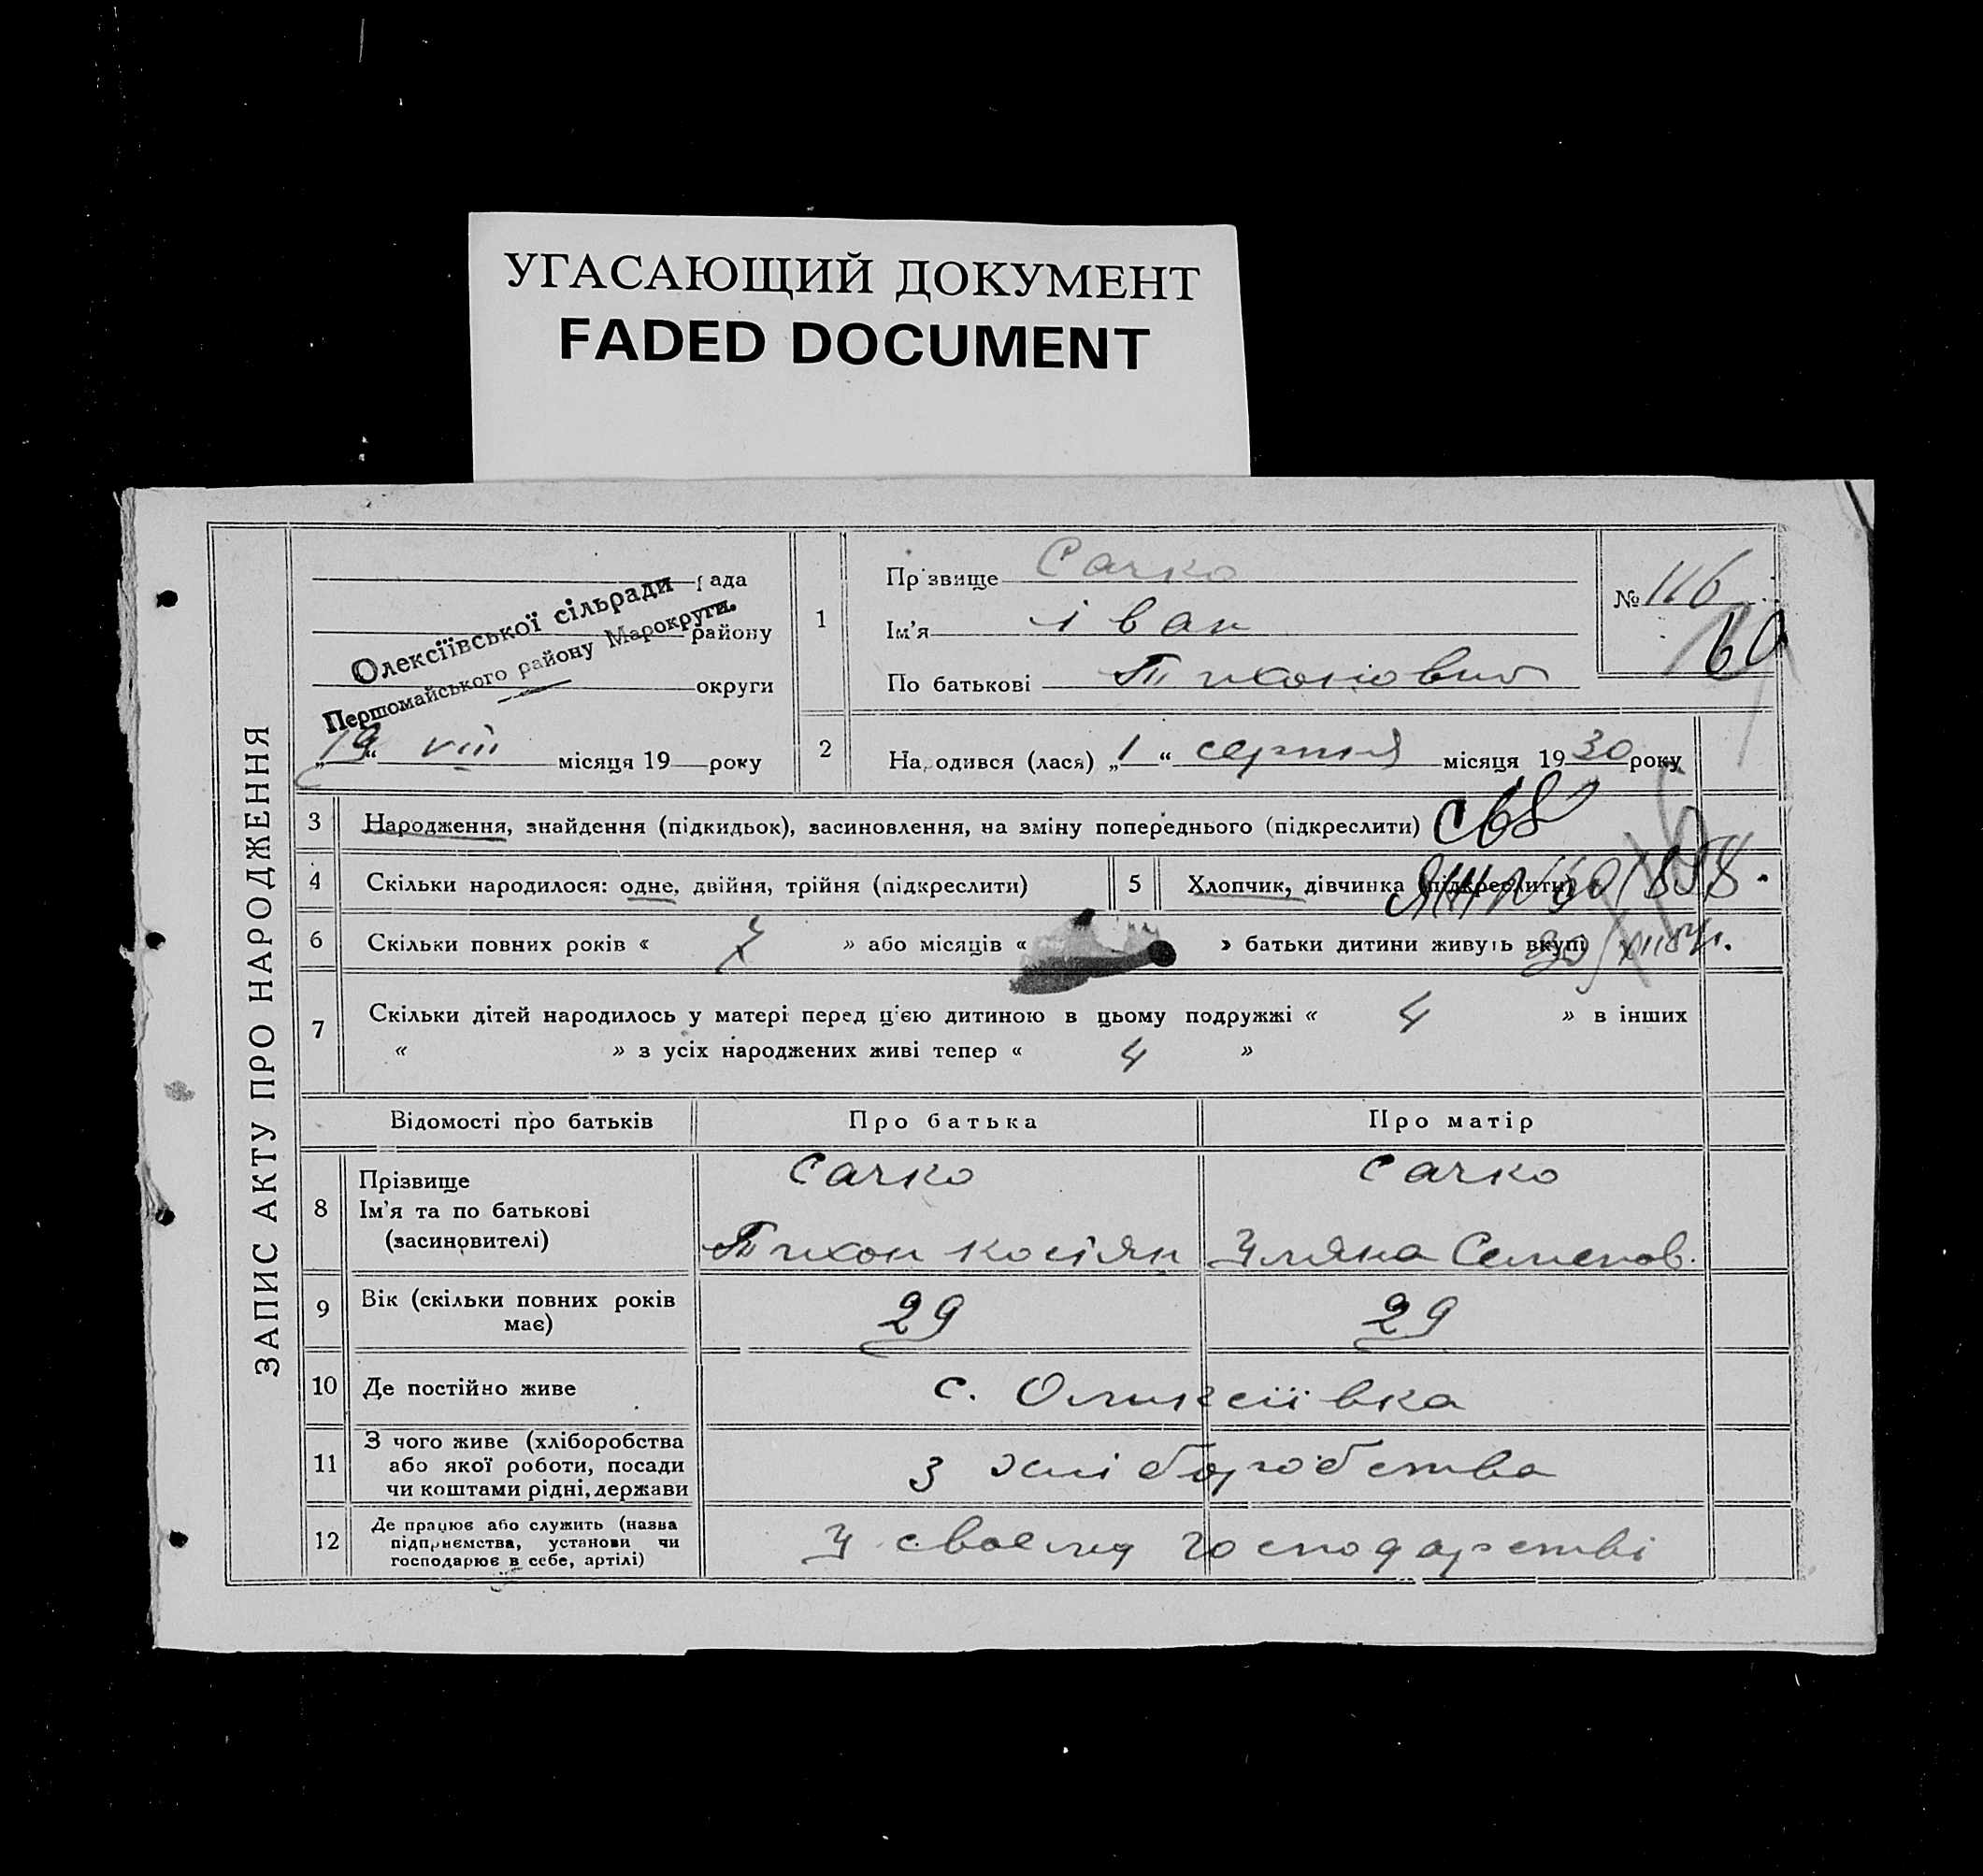 УГАСАЮЩИЙ ДОКУМЕНТ
FADED DOCUMENT
ЗАПИС АКТУ ПРО НАРОДЖЕННЯ
рада
району
округи
Олексіївської сільради
Першомайського району Марокруги.
„19“ VIII місяця 19 року
1
Прізвище Сачко
Ім'я Іван
По батькові Тихонович
№ 116
60
2
Народився (лася) „1“ серпня місяця 1930 року
3 Народження, знайдення (підкидьок), засиновлення, на зміну попереднього (підкреслити)
4 Скільки народилося: одне, двійня, трійня (підкреслити)
5 Хлопчик, дівчинка (підкреслити)
6 Скільки повних років « 7 » або місяців « » батьки дитини живуть вкупі
7 Скільки дітей народилось у матері перед цією дитиною в цьому подружжі « 4 » в інших
« » з усіх народжених живі тепер « 4 »
Відомості про батьків Про батька Про матір
8 Прізвище Сачко Сачко
Ім'я та по батькові
(засиновителі) Тихон Костян Уляна Семенов.
9 Вік (скільки повних років має) 29 29
10 Де постійно живе с. Олексіївка
11 З чого живе (хліборобства
або якої роботи, посади
чи коштами рідні, держави з хліборобства
12 Де працює або служить (назва
підприємства, установи чи
господарює в себе, артілі) У своему господарстві